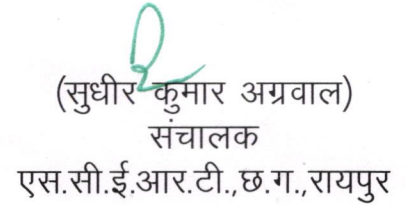 (सुधीर कुमार अग्रवाल)
संचालक
एस.सी.ई.आर.टी.,छ.ग.,रायपुर